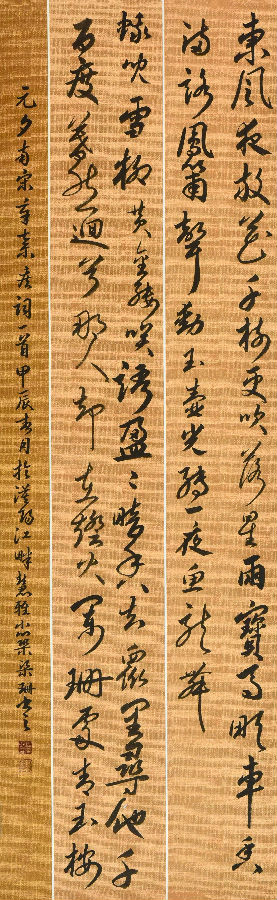 東風夜放花千樹更吹落星雨寶馬雕車香
滿路鳳簫聲動玉壺光轉一夜魚龍舞
蛾兒雪柳黃金縷笑語盈〻暗香去衆里尋他千
百度驀然迴首那人却在燈火闌珊處青玉案
元夕南宋辛棄疾詞一首甲辰春月於陽江畔慧雅小築梁珊書之